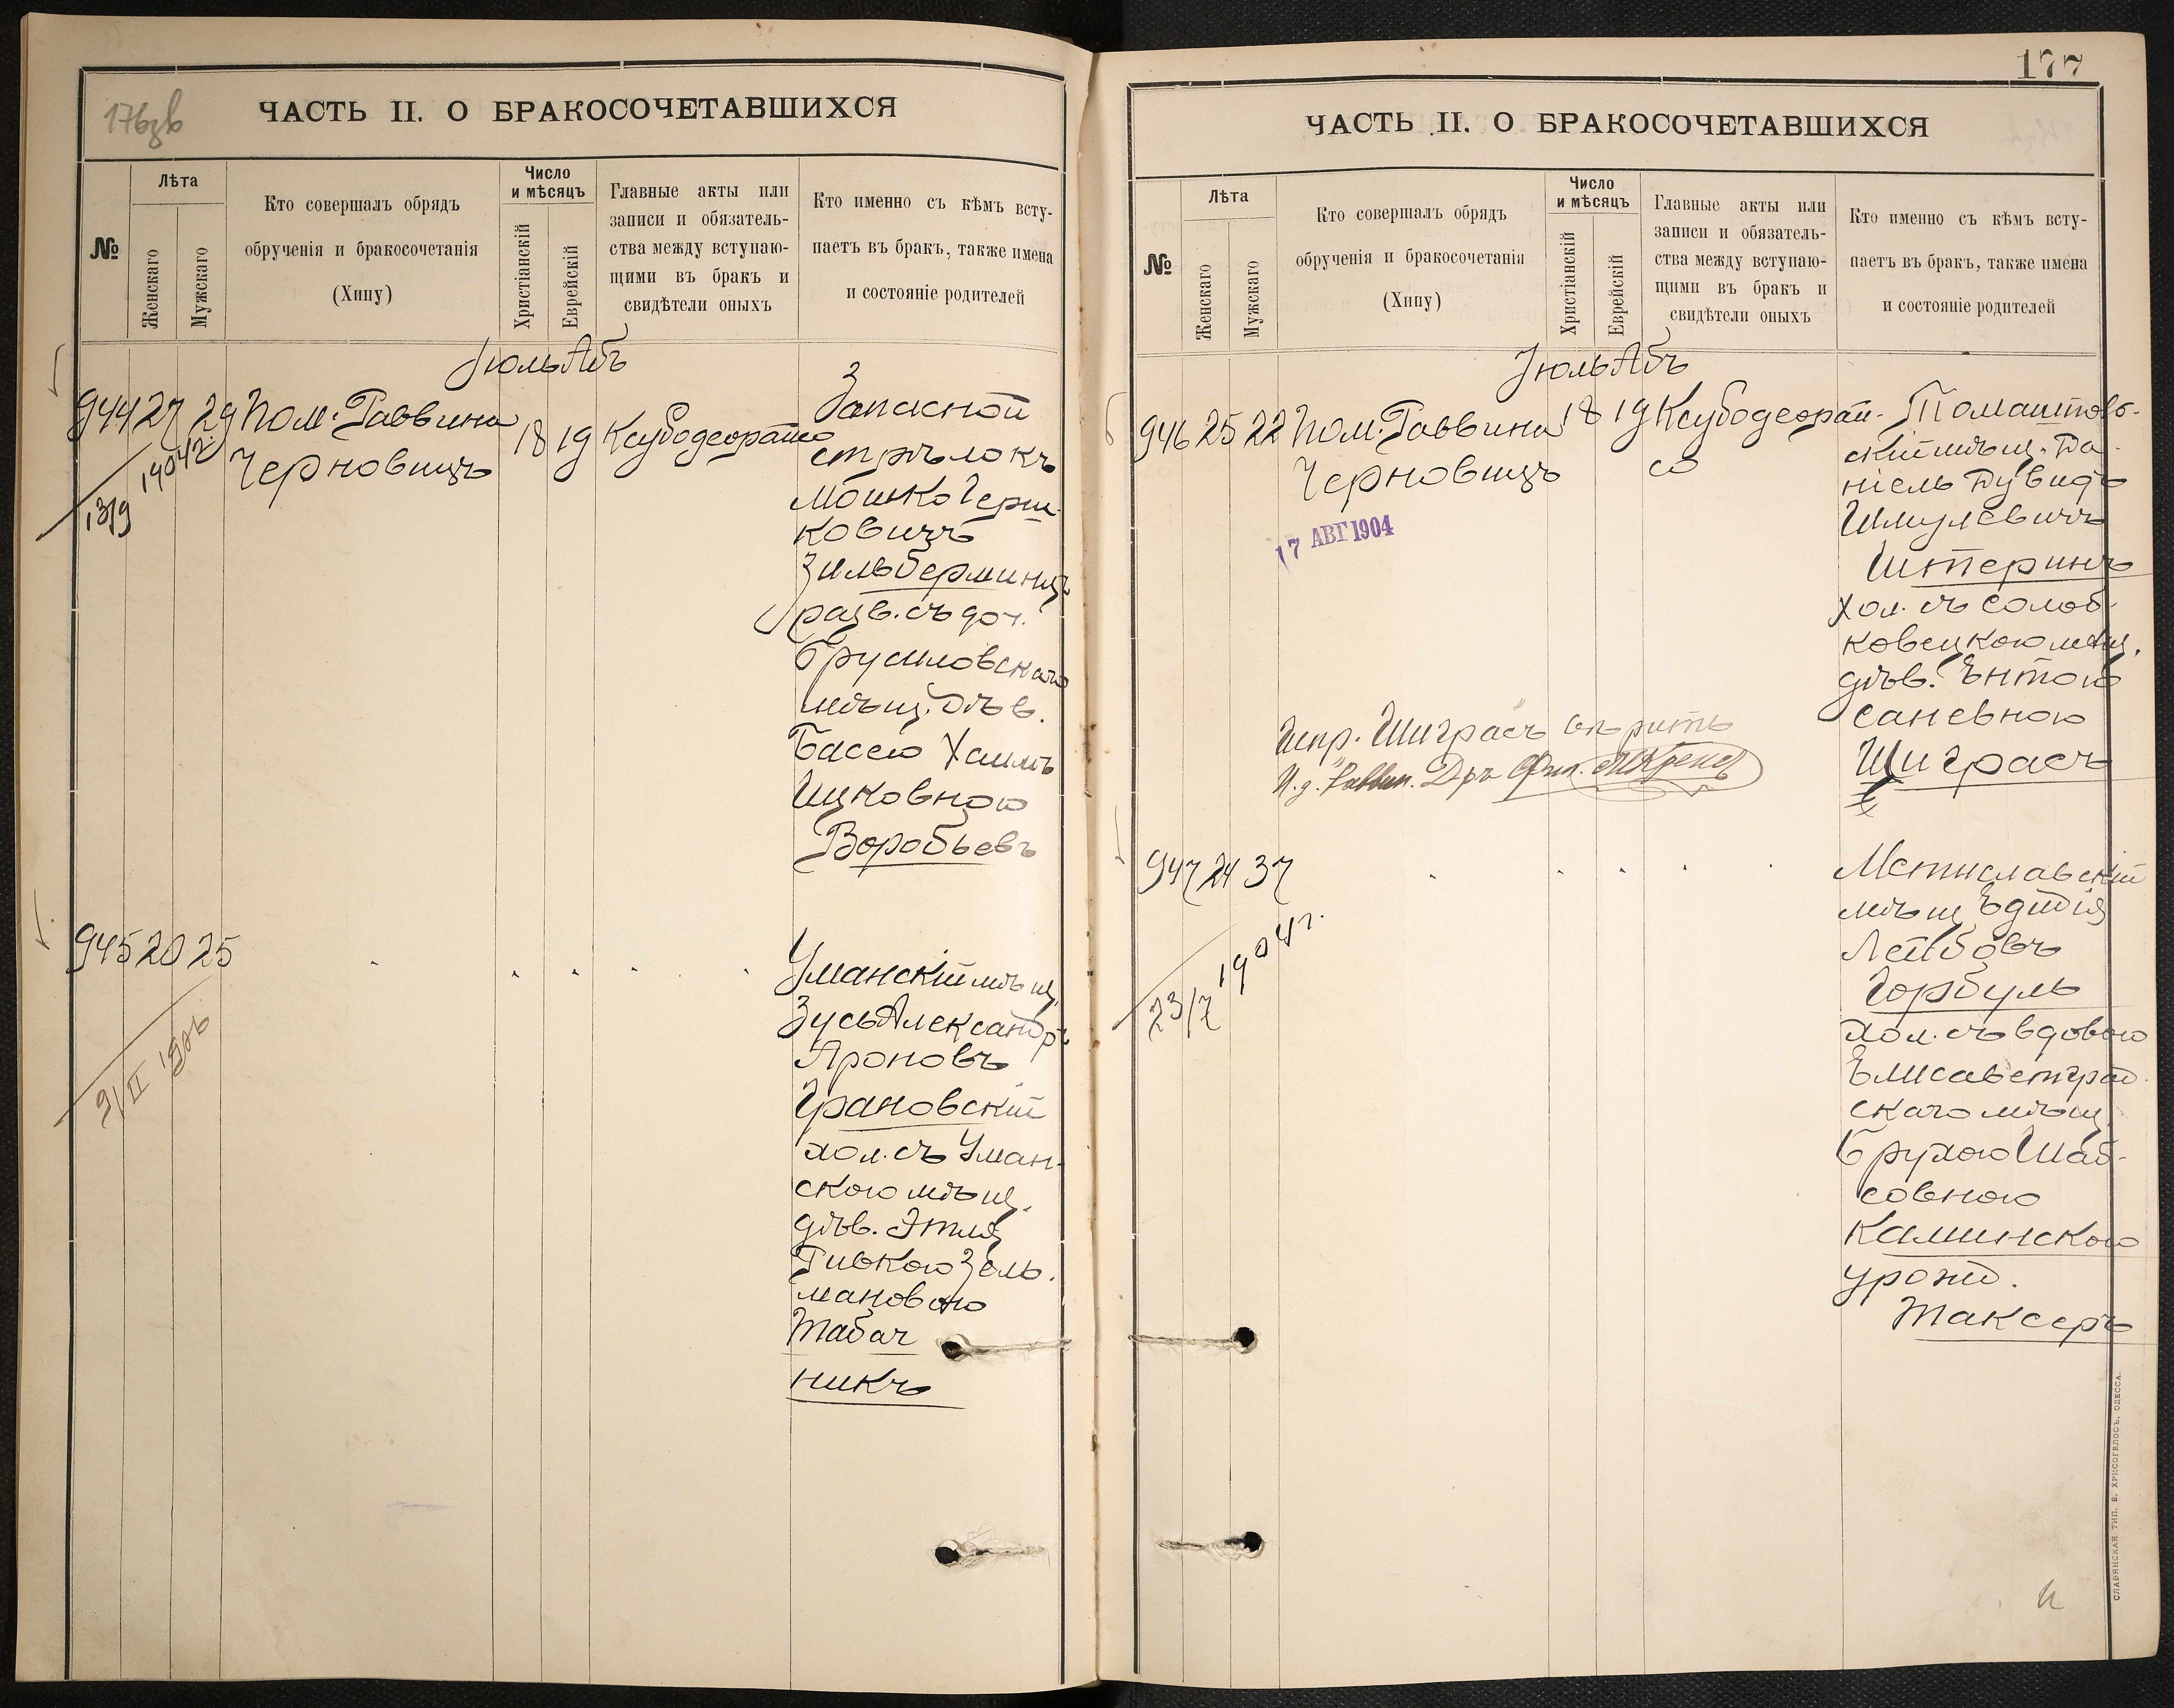 176зв
ЧАСТЬ II. О БРАКОСОЧЕТАВШИХСЯ
№
Лѣта
Женскаго
Мужскаго
Кто совершалъ обрядъ
обрученія и бракосочетанія
(Хипу)
Число
и мѣсяцъ
Христіанскій
Еврейскій
Главные акты или
записи и обязатель-
ства между вступаю-
щими въ бракъ и
свидѣтели оныхъ
Кто именно съ кѣмъ всту-
паетъ въ бракъ, также имена
и состояніе родителей
Іюль Абъ
944 27 29 Пом. Раввина
Черновицъ
18 19
1904 г.
13/9
Запасной
стрѣлокъ
Мошко Герш-
ковичъ
Зильберминцъ
разв. съ доч.
Брусиловскаго
мѣщ. дѣв.
Басею Хаимъ
Ицковною
Воробьевъ
945 20 25
9/II
Уманскій мѣщ.
Зусь Александръ
Ароновъ
Грановскій
хол. съ Уман-
скою мѣщ.
дѣв. Этля
Ривкою Зель-
мановою
Табач
никъ
177
ЧАСТЬ II. О БРАКОСОЧЕТАВШИХСЯ
№
Лѣта
Женскаго
Мужскаго
Кто совершалъ обрядъ
обрученія и бракосочетанія
(Хипу)
Число
и мѣсяцъ
Христіанскій
Еврейскій
Главные акты или
записи и обязатель-
ства между вступаю-
щими въ бракъ и
свидѣтели оныхъ
Кто именно съ кѣмъ всту-
паетъ въ бракъ, также имена
и состояніе родителей
Іюль Абъ
946 25 22 Пом. Раввина
Черновицъ
18 19
17 АВГ 1904
скій мѣщ. Да-
ніель Дувидъ
Шмулевичъ
Штеринъ
хол. съ Солоб-
ковецкою мѣщ.
дѣв. Ентою
Саневною
Шиграсъ
Испр. "Шиграсъ"
И.д. Раввин. Дръ Фил.
947 24 37
1904 г.
23/7
Мстиславскій
мѣщ Едидія
Лейбовъ
Горбуль
хол. съ вдовою
Елисаветград
скаго мѣщ.
Брухою Шаб-
совною
Каминскою
урожд.
Таксеръ
СЛАВЯНСКАЯ ТИП. Е. ХРИСОГЕЛОСЪ, ОДЕССА.